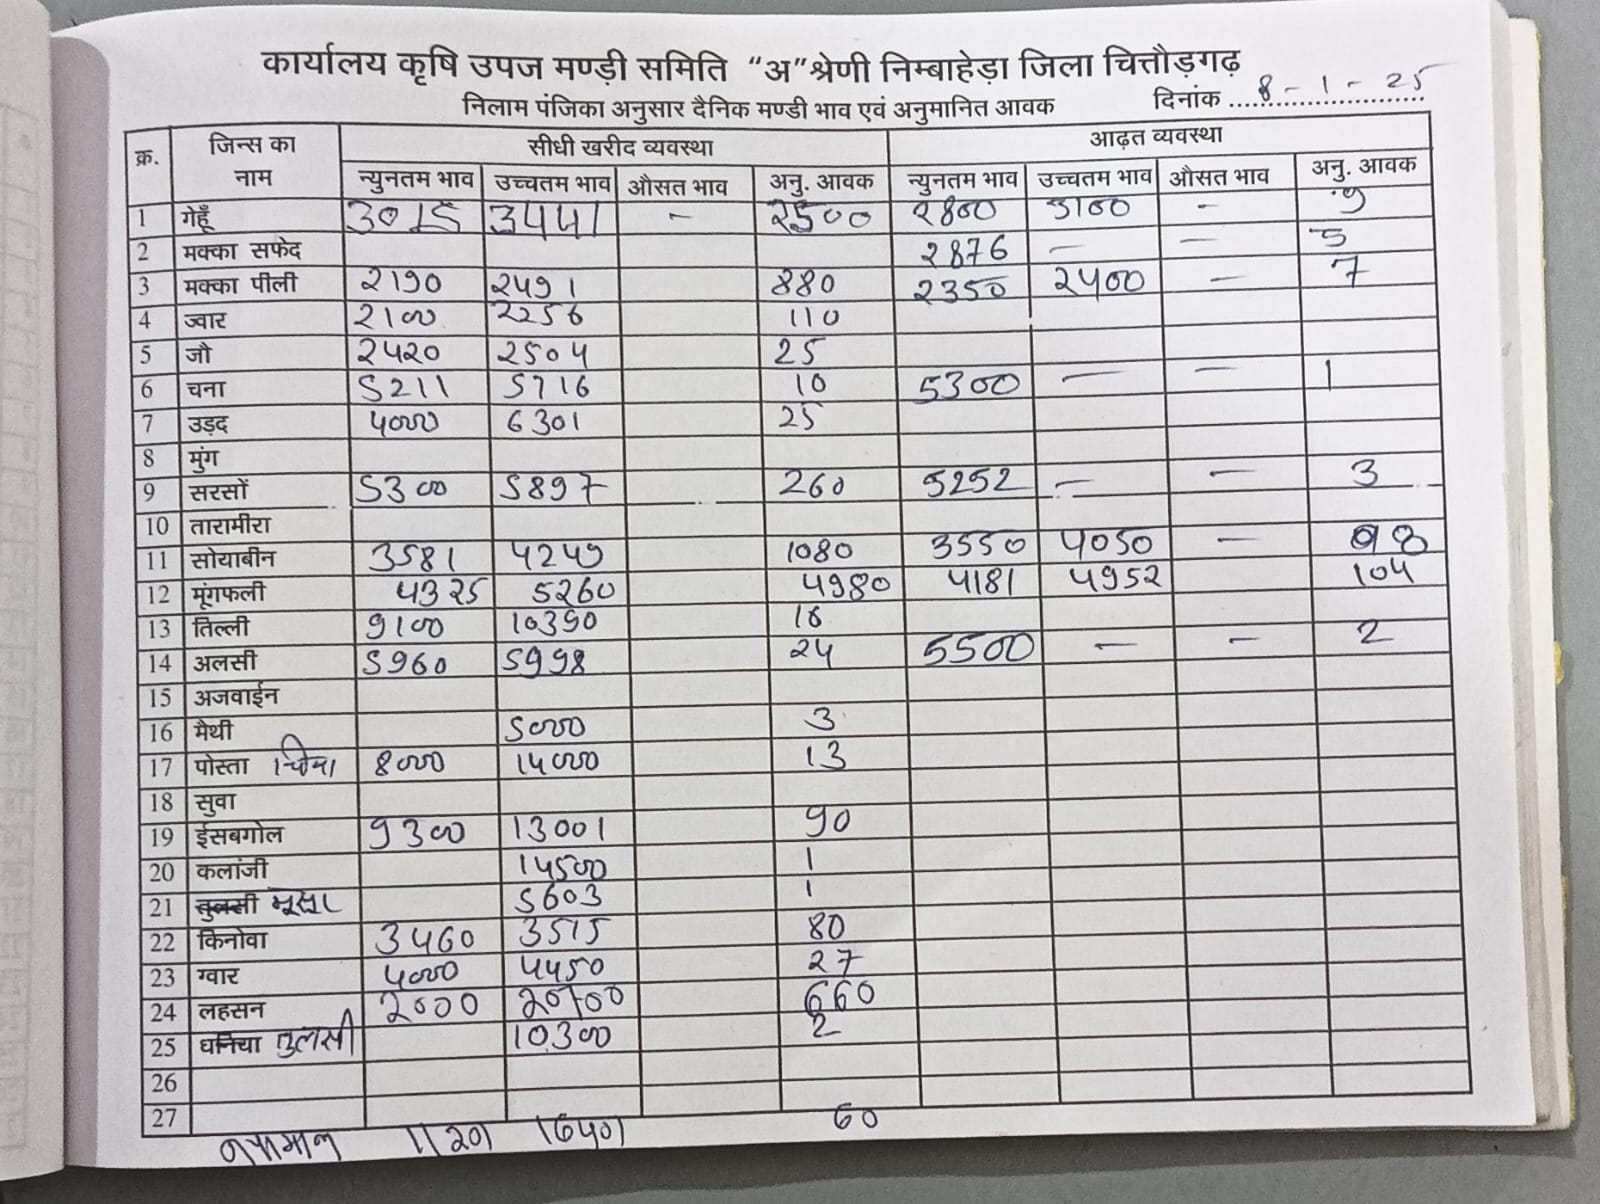 कार्यालय कृषि उपज मण्ड़ी समिति "अ" श्रेणी निम्बाहेड़ा जिला चित्तौड़गढ़
निलाम पंजिका अनुसार दैनिक मण्डी भाव एवं अनुमानित आवक दिनांक 8-1-25
क्र. जिन्स का नाम सीधी खरीद व्यवस्था आढ़त व्यवस्था
न्युनतम भाव उच्चतम भाव औसत भाव अनु. आवक न्युनतम भाव उच्चतम भाव औसत भाव अनु. आवक
1 गेहूँ 3015 3441 - 2500 2800 3100 -
2 मक्का सफेद 2876 — — 5
3 मक्का पीली 2190 2491 880 2350 2400 - 7
4 ज्वार 2100 2256 110
5 जौ 2420 2504 25
6 चना 5211 5716 10 5300 — - 1
7 उड़द 4000 6301 25
8 मुंग
9 सरसों 5300 5897 260 5252 — - 3
10 तारामीरा
11 सोयाबीन 3581 4249 1080 3550 4050 -
12 मूंगफली 4325 5260 4980 4181 4952 104
13 तिल्ली 9100 10390
14 अलसी 5960 5998 24 5500 — - 2
15 अजवाईन
16 मैथी 5000 3
17 पोस्ता 8000 14000 13
18 सुवा
19 ईसबगोल 9300 13001 90
20 कलांजी 14500 1
21 तुलसी 5603 1
22 किनोवा 3460 3515 80
23 ग्वार 4000 4450 27
24 लहसन 2000 20700 660
25 धनिया तुलसी 10300 2
26
27
नयामाल 11201 16401 60